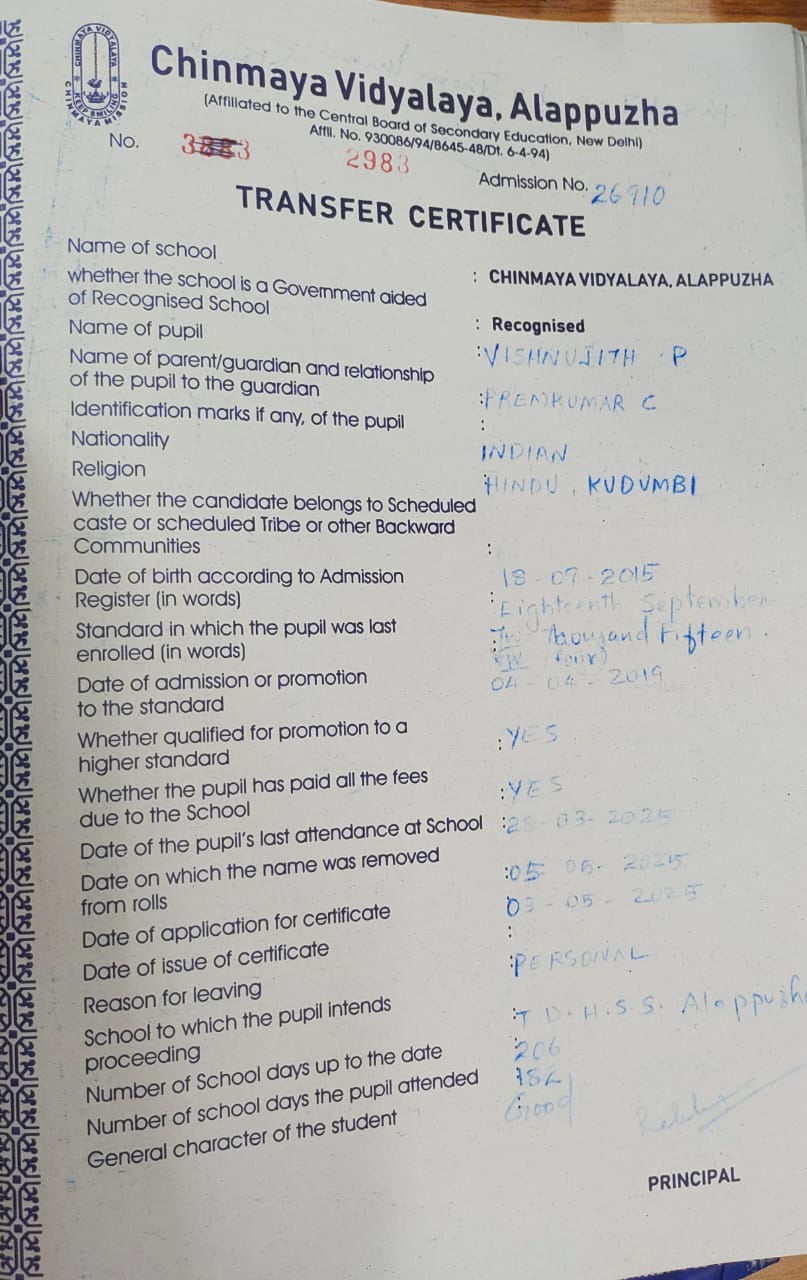 CHINMAYA VIDYALAYA
KEEP SMILING
CHINMAYA MISSION
Chinmaya Vidyalaya, Alappuzha
(Affiliated to the Central Board of Secondary Education, New Delhi)
Affil. No. 930086/94/8645-48/Dt. 6-4-94)
No. 2983
Admission No. 26910
TRANSFER CERTIFICATE
Name of school : CHINMAYA VIDYALAYA, ALAPPUZHA
whether the school is a Government aided
of Recognised School : Recognised
Name of pupil : VISHNUJITH P
Name of parent/guardian and relationship
of the pupil to the guardian : PREMKUMAR C
Identification marks if any, of the pupil :
Nationality INDIAN
Religion HINDU, KUDUMBI
Whether the candidate belongs to Scheduled
caste or scheduled Tribe or other Backward
Communities :
Date of birth according to Admission 18-09-2015
Register (in words) : Eighteenth September
Thousand Fifteen.
Standard in which the pupil was last
enrolled (in words) (four)
Date of admission or promotion 04-04-2019
to the standard
Whether qualified for promotion to a
higher standard : YES
Whether the pupil has paid all the fees
due to the School : YES
Date of the pupil's last attendance at School : 28-03-2025
Date on which the name was removed
from rolls : 05-05-2025
Date of application for certificate 03-05-2025
Date of issue of certificate :
Reason for leaving : PERSONAL
School to which the pupil intends
proceeding : T.D.H.S.S. Alappuzha
Number of School days up to the date : 206
Number of school days the pupil attended : 182
General character of the student Good
PRINCIPAL